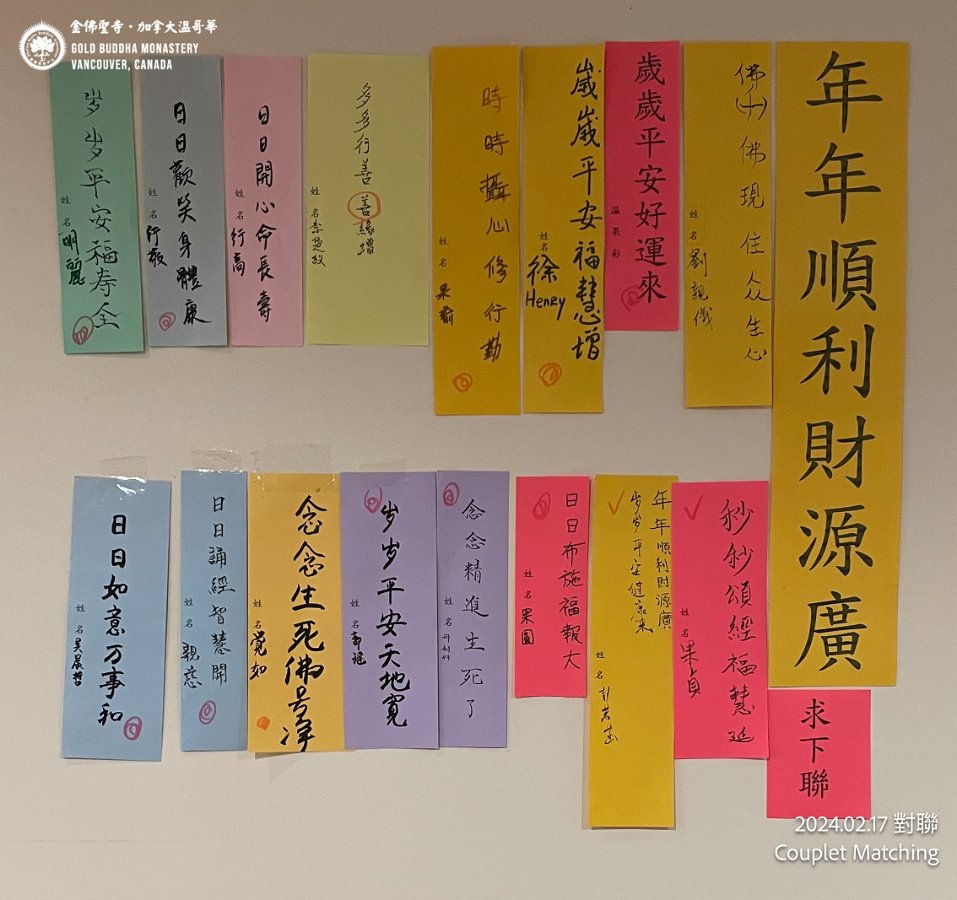 金佛聖寺·加拿大溫哥華
GOLD BUDDHA MONASTERY
VANCOUVER, CANADA
年年順利財源廣
求下聯
佛佛現住众生心
姓名 劉親儀
歲歲平安好運來
溫果彩
歲歲平安福慧增
姓名 徐Henry
時時攝心修行勤
姓名 果瑜
多多行善善緣增
姓名
日日開心命長壽
姓名 行高
日日歡笑身體康
姓名 行敬
岁岁平安福寿全
姓名 明麗
秒秒頌經福慧延
姓名 果貞
年年順利財源廣
岁岁平安健康來
姓名
日日布施福報大
姓名 果圓
念念精進生死了
姓名
岁岁平安天地寬
姓名
念念生死佛号凈
姓名 覺如
日日誦經智慧開
姓名 親慈
日日如意万事和
姓名 吴晨哲
2024.02.17 對聯
Couplet Matching